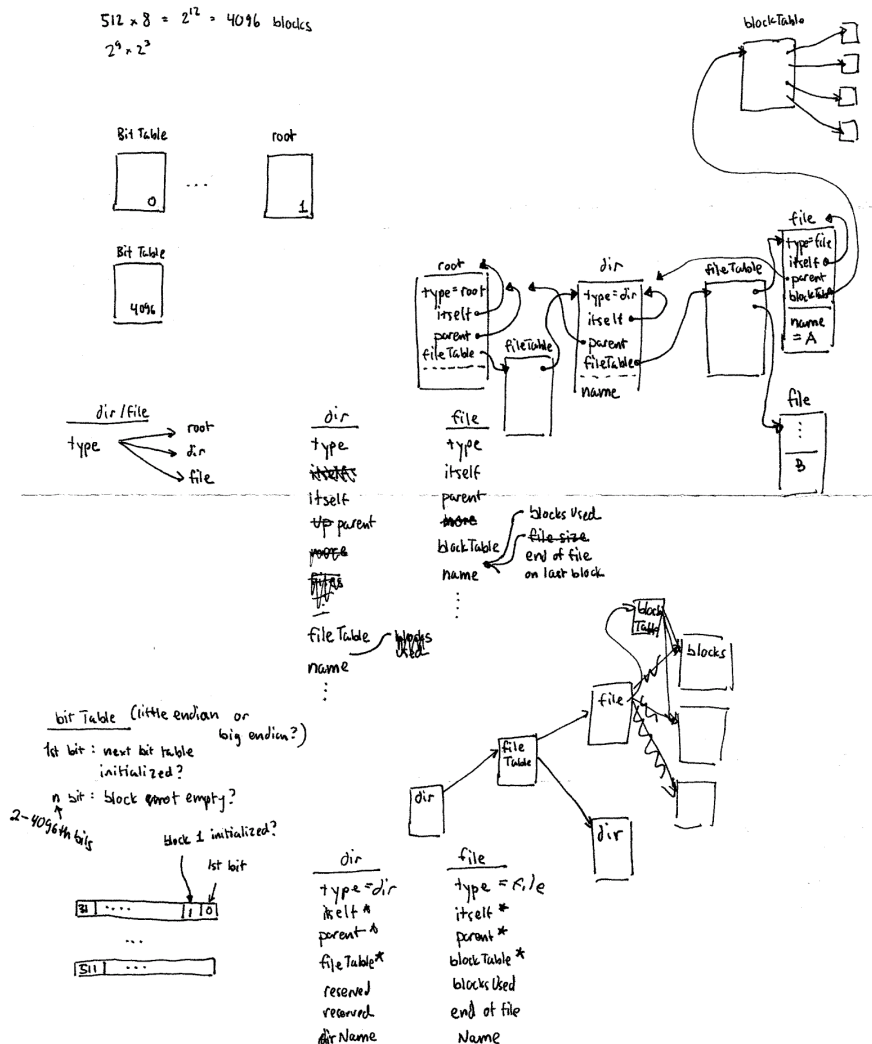 512 x 8 = 2^12 = 4096 blocks
2^9 x 2^3
blockTable
Bit Table
0
...
root
1
Bit Table
4096
root
type=root
itself
parent
fileTable
fileTable
dir
type=dir
itself
parent
fileTable
name
fileTable
file
type=file
itself
parent
blockTable
name
= A
file
⋮
B
dir/file
type
root
dir
file
dir
type
itself
parent
fileTable
name
⋮
file
type
itself
parent
blockTable
name
⋮
blocks Used
file size
end of file
on last block
block
Table
blocks
file
file
Table
dir
dir
bit Table (little endian or
big endian?)
1st bit : next bit table
initialized?
n bit : block not empty?
2-4096th bits
block 1 initialized?
1st bit
31 .... 1 0
...
511 ...
dir
type=dir
itself *
parent *
fileTable *
reserved
reserved
dirName
file
type = file
itself *
parent *
blockTable *
blocksUsed
end of file
Name